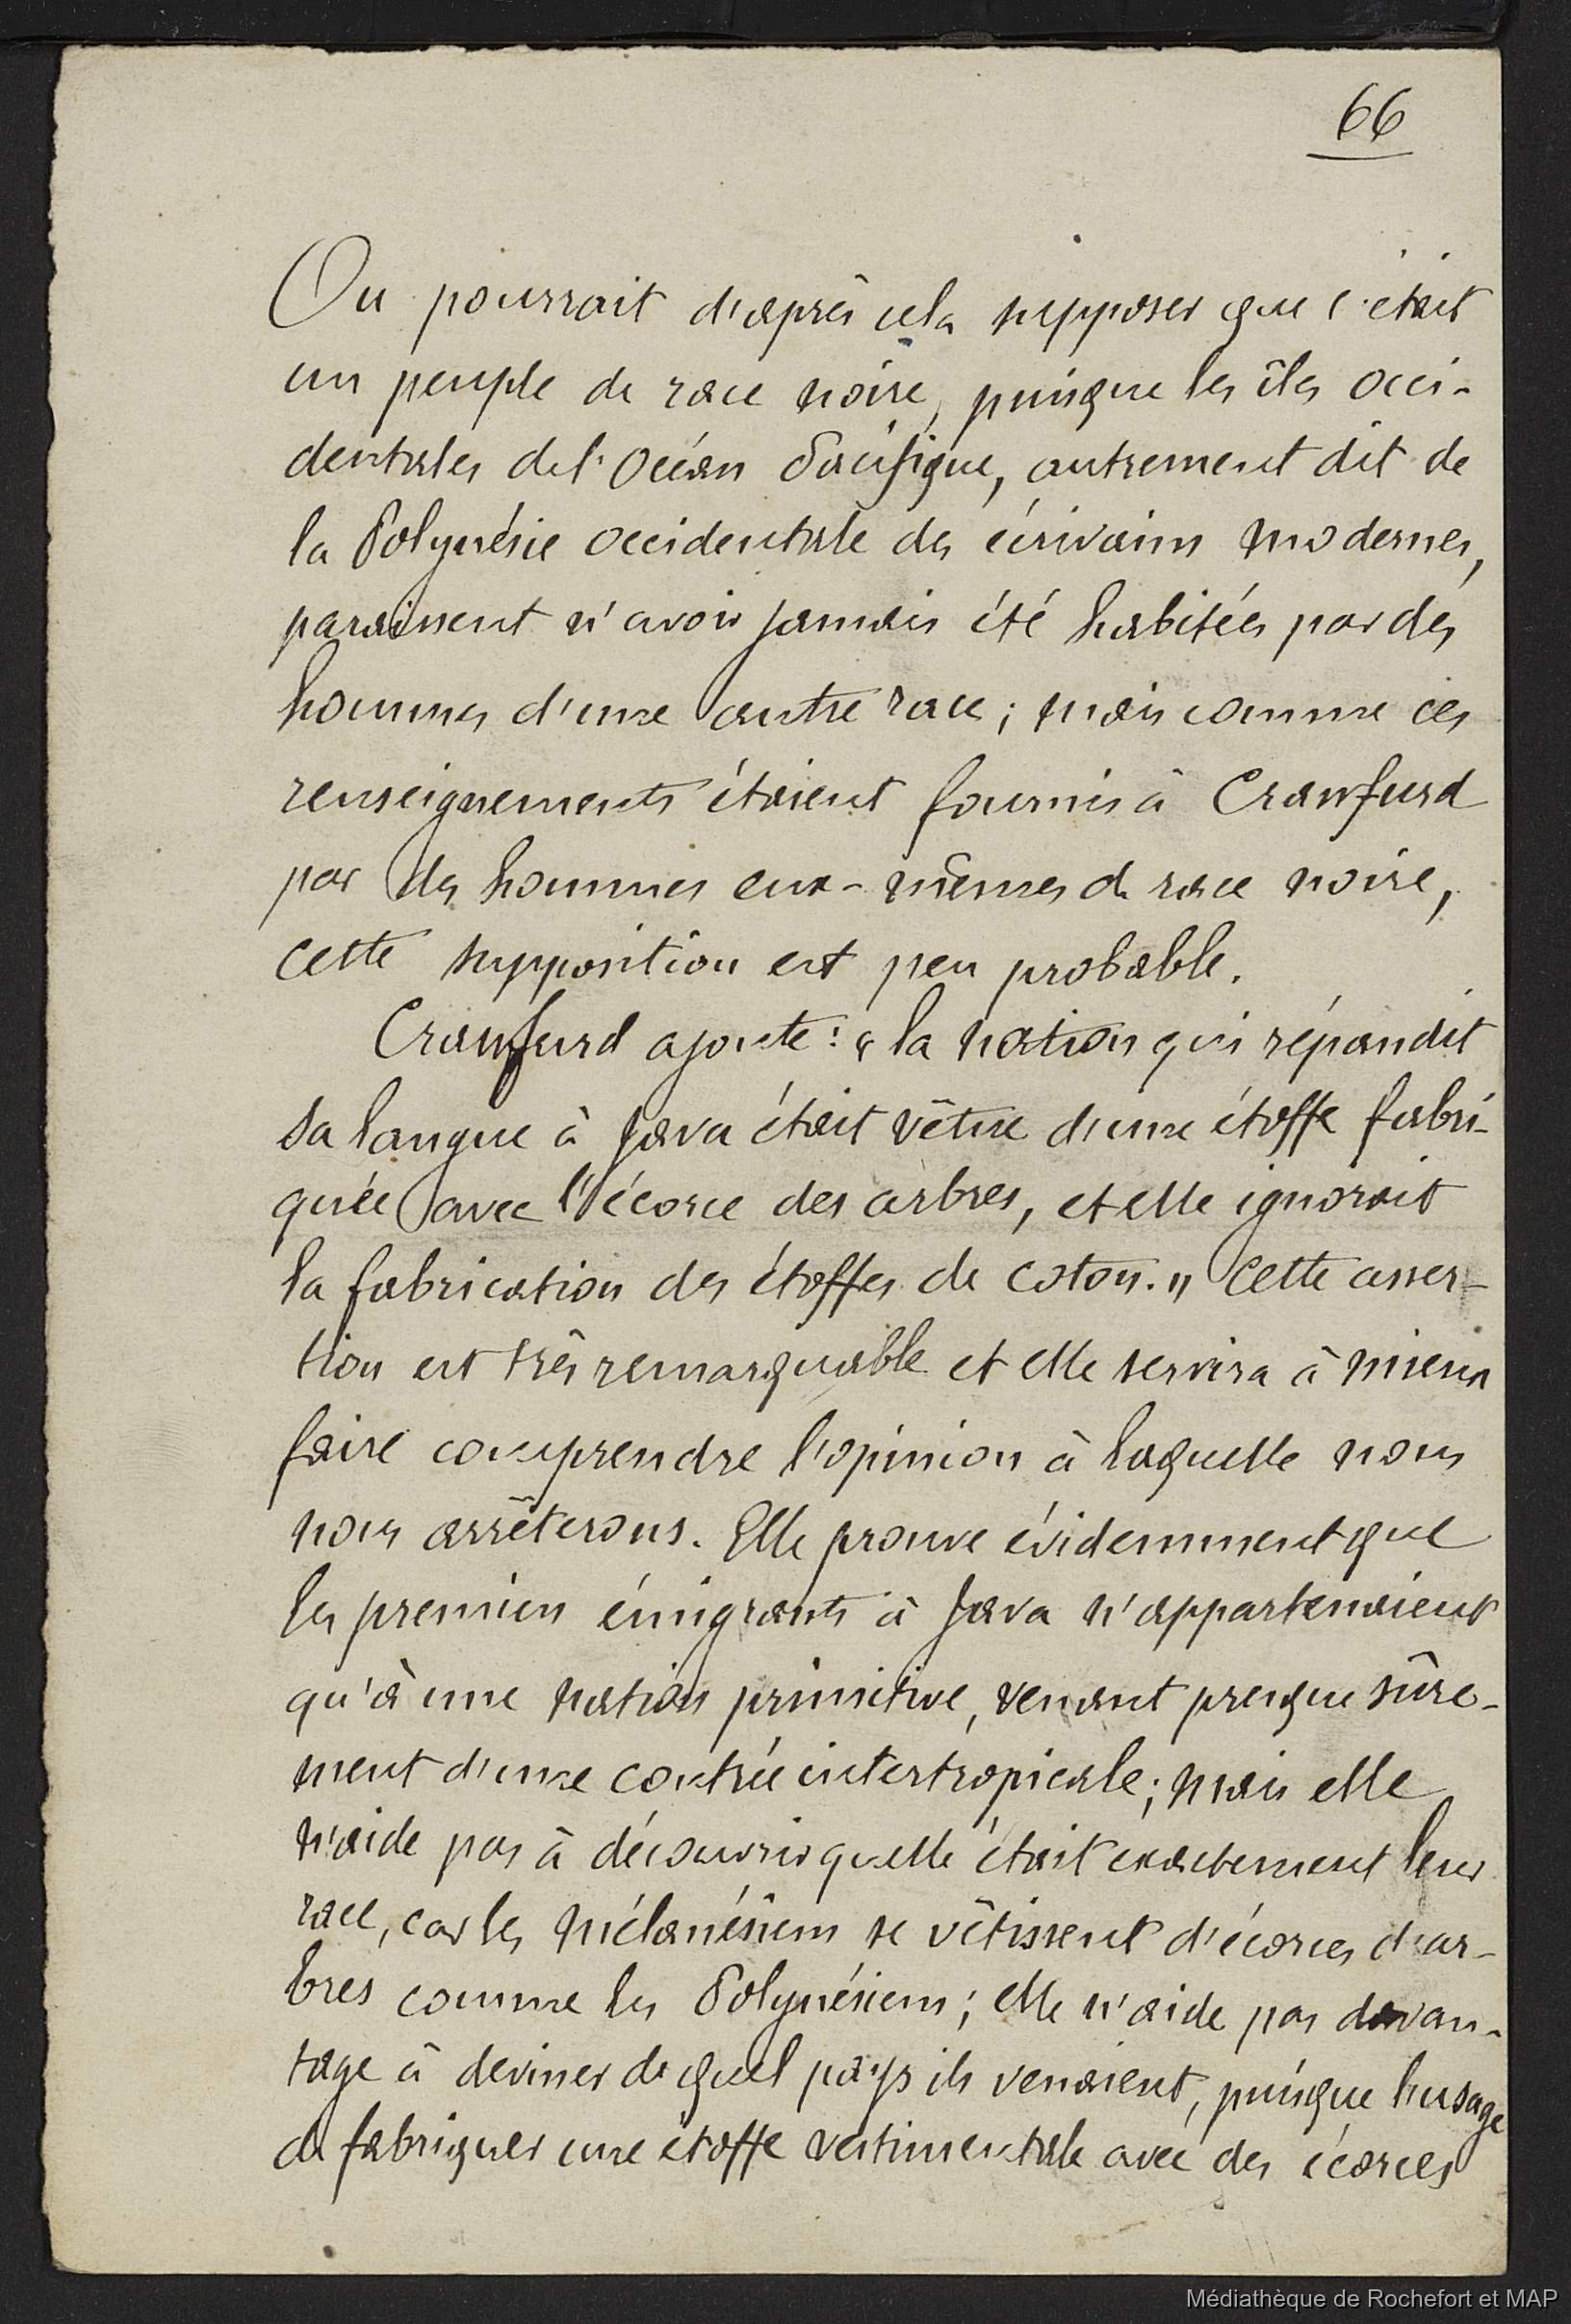 66
On pourrait d'après cela supposer que c'était
un peuple de race noire, puisque les îles occi-
dentales de l'Océan Pacifique, autrement dit de
la Polynésie occidentale des écrivains modernes,
paraissent n'avoir jamais été habitées par des
hommes d'une autre race; mais comme ces
renseignements étaient fournis à Crawfurd
par des hommes eux-mêmes de race noire,
cette supposition est peu probable.
Crawfurd ajoute: « la nation qui répandit
sa langue à Java était vêtue d'une étoffe fabri-
quée avec l'écorce des arbres, et elle ignorait
la fabrication des étoffes de coton. » Cette asser-
tion est très remarquable et elle servira à mieux
faire comprendre l'opinion à laquelle nous
nous arrêterons. Elle prouve évidemment que
les premiers émigrants à Java n'appartenaient
qu'à une nation primitive, venant presque sûre-
ment d'une contrée intertropicale; mais elle
n'aide pas à découvrir quelle était exactement leur
race, car les Mélanésiens se vêtissent d'écorces d'ar-
bres comme les Polynésiens; elle n'aide pas davan-
tage à deviner de quel pays ils venaient, puisque l'usage
de fabriquer une étoffe vestimentale avec des écorces
Médiathèque de Rochefort et MAP